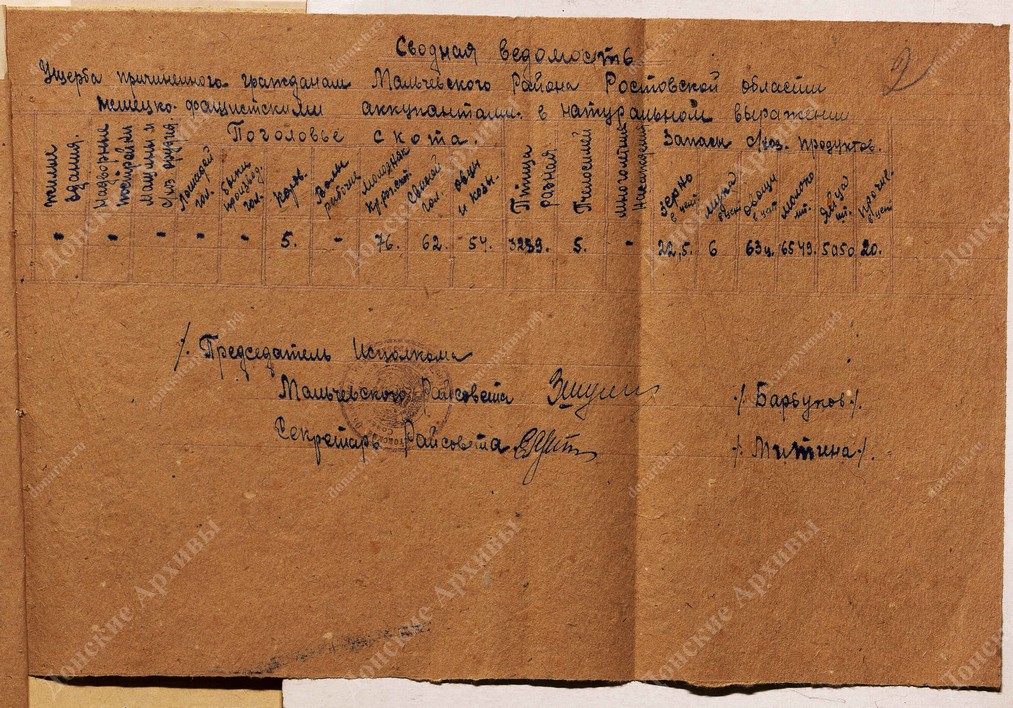 2
Сводная ведомость
Ущерба причиненного гражданам Мальчевского Района Ростовской области
немецко-фашистскими аккупантами в натуральном выражении
жилые здания.
Надворные постройки
Машины и с/хоз орудия.
Поголовье скота.
Лошадей гол.
Быки производ. гол.
Коров.
Волы рабочие
Молодняк
Свиней гол.
овцы и козы.
Птица разная.
Пчелосемей
Многолетние Насаждения
Запасы с/хоз. продуктов.
Зерно в
овощи в
молоко
яйца шт.
- - - - - 5. - 76. 62. 54. 3239. 5. - 22,5. 6 63ц. 6549. 5050 20.
/. Председатель Исполкома
Мальчевского Райсовета /. Барбуков /.
Секретарь Райсовета /. Митина /.
Донские Архивы
donarch.ru
донскиеархивы.рф